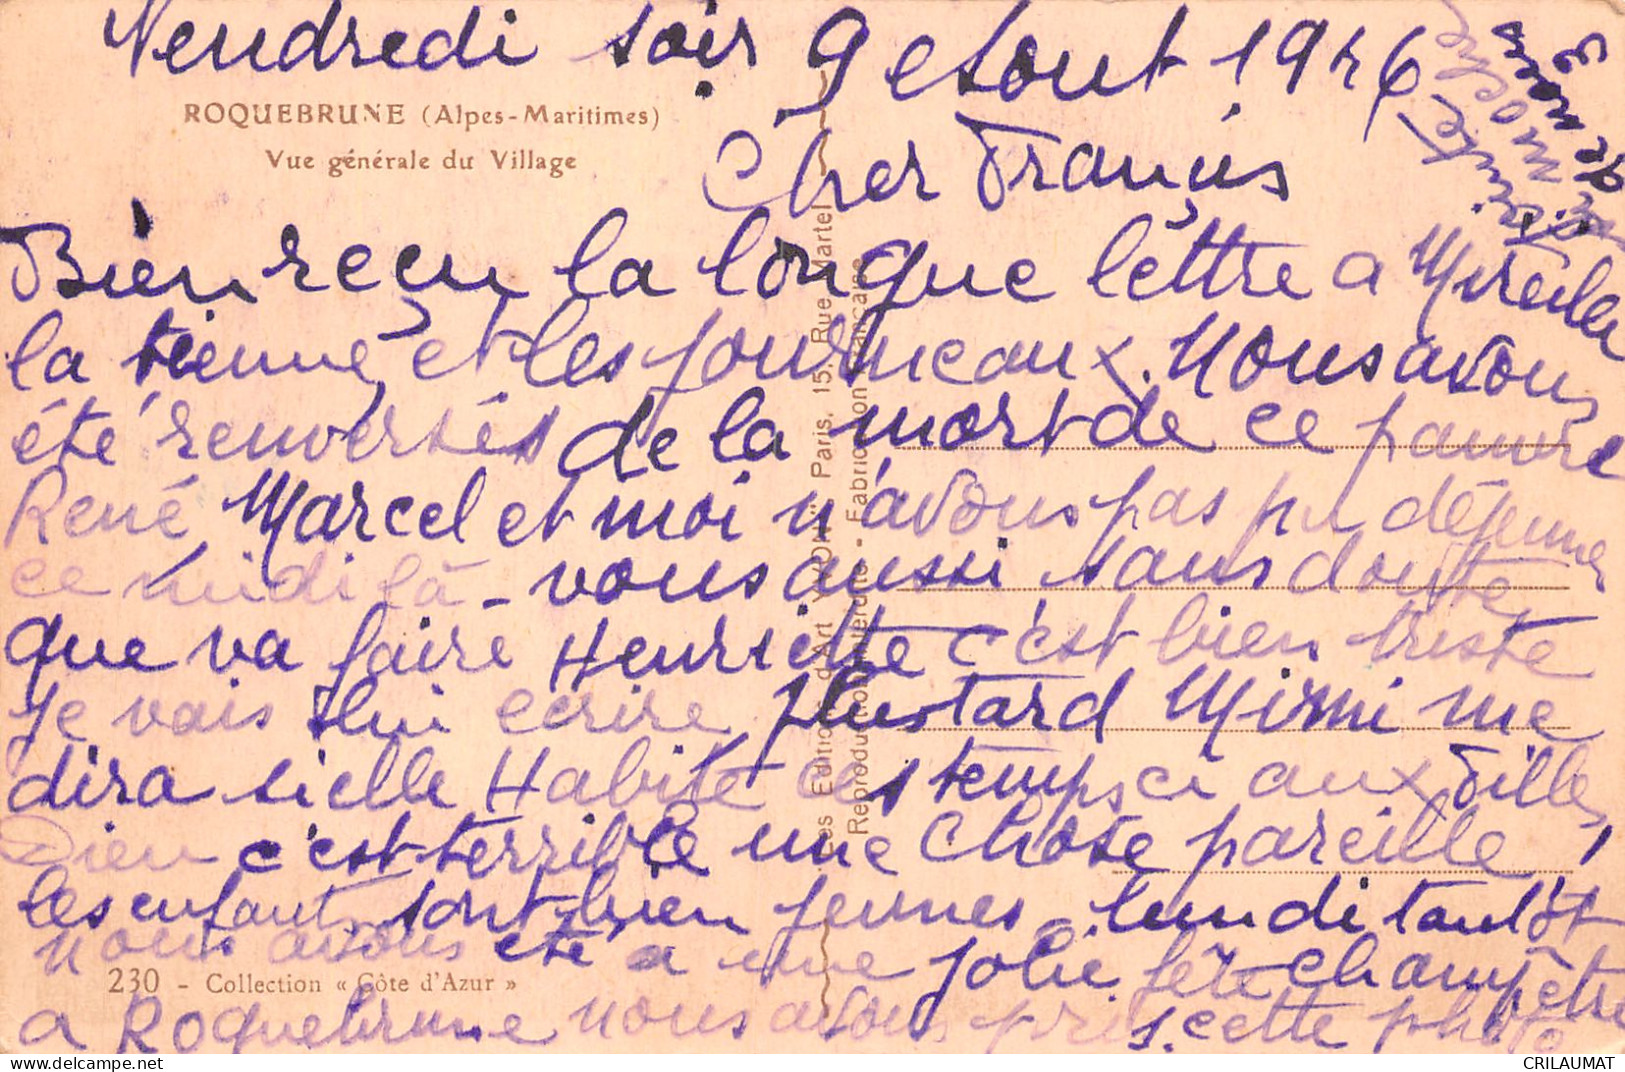 Vendredi soir 9 Aout 1946
ROQUEBRUNE (Alpes-Maritimes)
Vue générale du Village
Cher Francis
Bien reçu la longue lettre a Mireille
la tienne, et les journeaux. Nous avons
été renversés de la mort de ce pauvre
René Marcel et moi n'avons pas pu déjeuner
ce midi là - vous aussi sans doute,
que va faire Henriette c'est bien triste
je vais lui ecrire, plustard Mimi me
dira si elle Habite ces temps ci aux Tilles,
Dieu c'est terrible une chose pareille,
les enfants sont bien jeunes. lundi tantôt
nous avons été a une jolie fête champêtre
230 - Collection « Côte d'Azur »
a Roquebrune nous avons pris cette photo
Les Editions d'Art YVON" Paris, 15, Rue Martel
Reproduction Interdite - Fabrication Française
CRILAUMAT